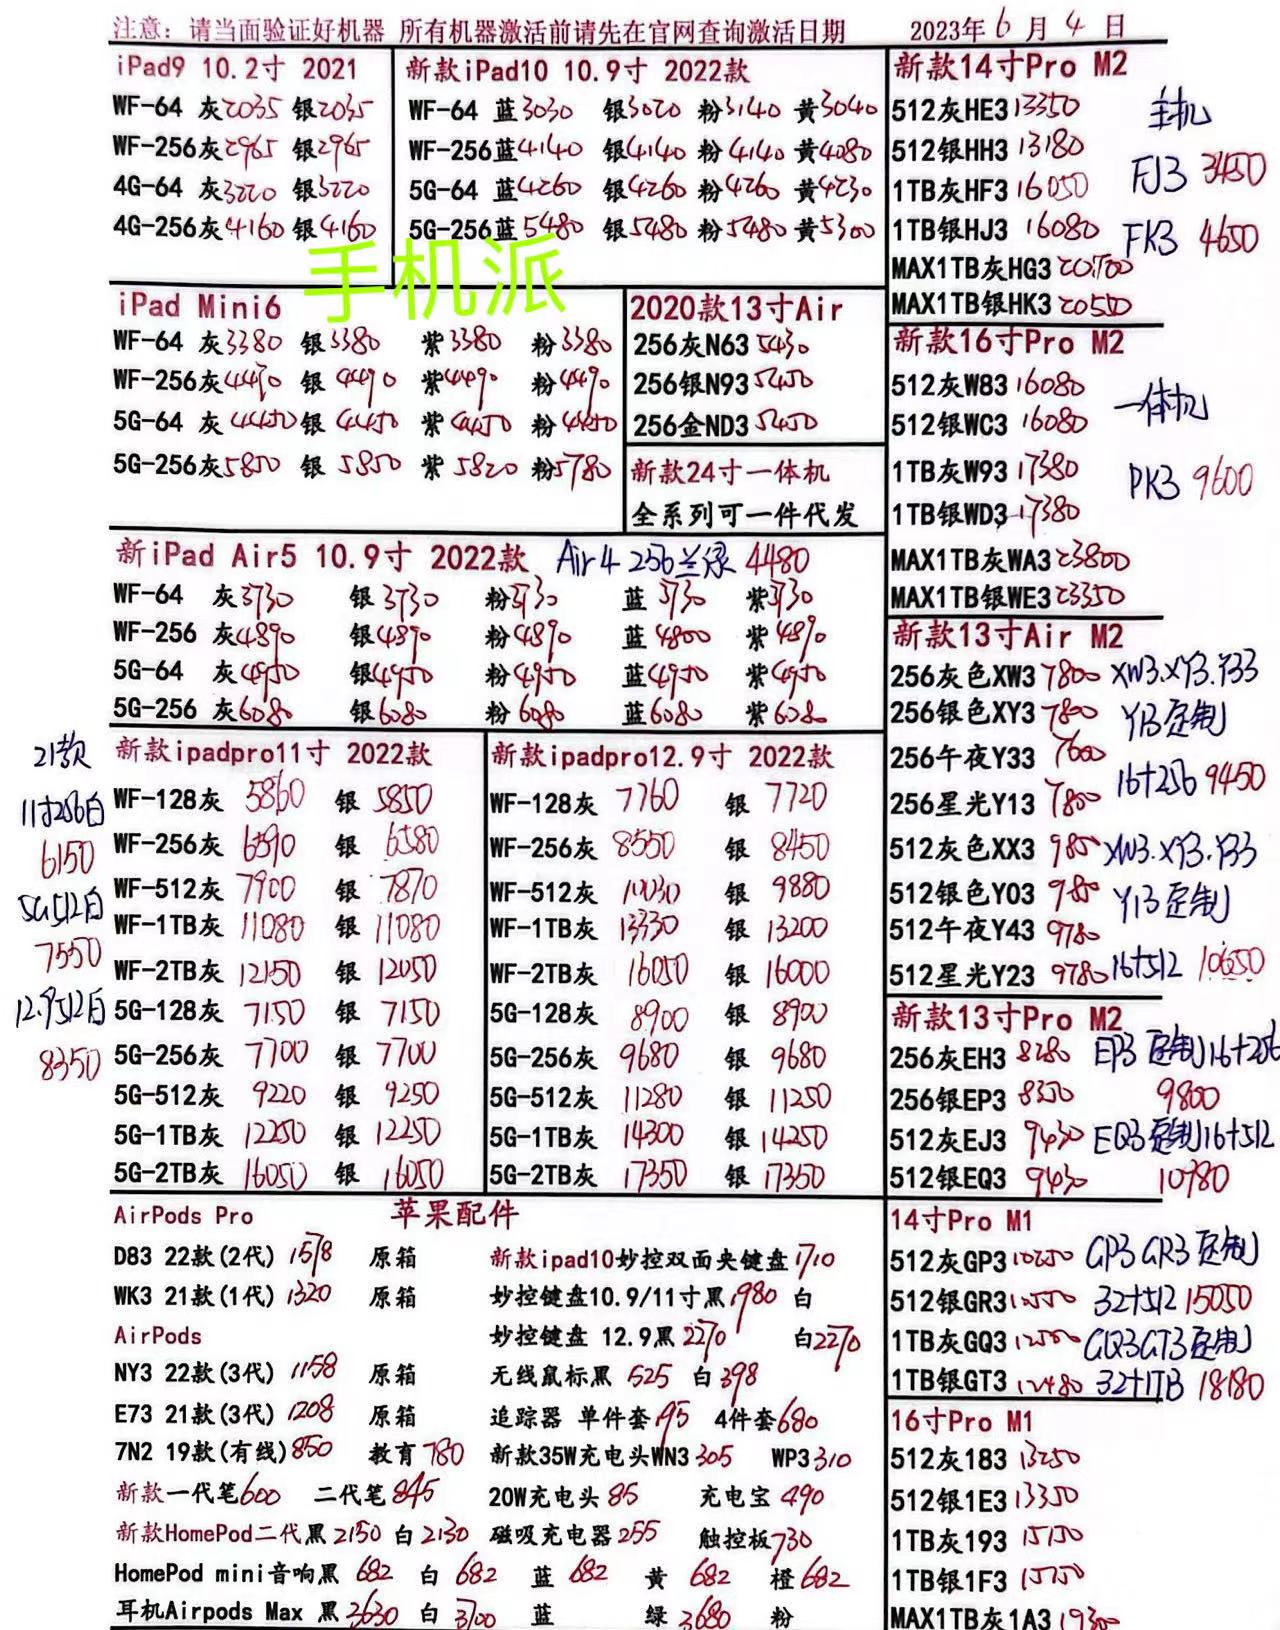 注意：请当面验证好机器 所有机器激活前请先在官网查询激活日期 2023年6月4日
iPad9 10.2寸 2021
WF-64 灰2035 银2035
WF-256灰2965 银2965
4G-64 灰3220 银3220
4G-256灰4160 银4160
新款iPad10 10.9寸 2022款
WF-64 蓝3030 银3020 粉3140 黄3040
WF-256蓝4140 银4140 粉4140 黄4080
5G-64 蓝4260 银4260 粉4260 黄4230
5G-256蓝5480 银5480 粉5480 黄5300
手机派
iPad Mini6
WF-64 灰3380 银3380 紫3380 粉3380
WF-256灰4490 银4490 紫4490 粉4490
5G-64 灰4450 银4450 紫4450 粉4450
5G-256灰5850 银5850 紫5820 粉5780
2020款13寸Air
256灰N63 5430
256银N93 5450
256金ND3 5450
新款24寸一体机
全系列可一件代发
新iPad Air5 10.9寸 2022款 Air4 256兰绿 4480
WF-64 灰3730 银3730 粉3730 蓝3730 紫3730
WF-256 灰4890 银4890 粉4890 蓝4800 紫4890
5G-64 灰4950 银4950 粉4950 蓝4950 紫4950
5G-256 灰6080 银6080 粉6080 蓝6080 紫6080
21款
11寸256白
6150
5G512白
7550
12.9512白
8350
新款ipadpro11寸 2022款
WF-128灰 5860 银 5850
WF-256灰 6590 银 6580
WF-512灰 7900 银 7870
WF-1TB灰 11080 银 11080
WF-2TB灰 12150 银 12050
5G-128灰 7150 银 7150
5G-256灰 7700 银 7700
5G-512灰 9220 银 9250
5G-1TB灰 12250 银 12250
5G-2TB灰 16050 银 16050
新款ipadpro12.9寸 2022款
WF-128灰 7760 银 7720
WF-256灰 8550 银 8450
WF-512灰 10030 银 9880
WF-1TB灰 13330 银 13200
WF-2TB灰 16050 银 16000
5G-128灰 8900 银 8900
5G-256灰 9680 银 9680
5G-512灰 11280 银 11250
5G-1TB灰 14300 银 14250
5G-2TB灰 17350 银 17350
苹果配件
AirPods Pro
D83 22款(2代) 1578 原箱
WK3 21款(1代) 1320 原箱
AirPods
NY3 22款(3代) 1158 原箱
E73 21款(3代) 1208 原箱
7N2 19款(有线)850 教育780
新款一代笔600 二代笔845
新款HomePod二代黑2150 白2130
HomePod mini音响黑 682 白 682 蓝 682 黄 682 橙682
耳机Airpods Max 黑3630 白 3700 蓝 绿 3680 粉
新款ipad10妙控双面夹键盘1710
妙控键盘10.9/11寸黑1980 白
妙控键盘 12.9黑2270 白2270
无线鼠标黑 525 白398
追踪器 单件套195 4件套680
新款35W充电头WN3 305 WP3 310
20W充电头 85 充电宝 490
磁吸充电器255 触控板730
新款14寸Pro M2
512灰HE3 13350
512银HH3 13180
1TB灰HF3 16050
1TB银HJ3 16080
MAX1TB灰HG3 20700
MAX1TB银HK3 20550
主机
FJ3 3450
FK3 4650
新款16寸Pro M2
512灰W83 16080
512银WC3 16080
1TB灰W93 17380
1TB银WD3 17380
MAX1TB灰WA3 23800
MAX1TB银WE3 23350
一体机
PK3 9600
新款13寸Air M2
256灰色XW3 7800
256银色XY3 7800
256午夜Y33 7600
256星光Y13 7800
512灰色XX3 985
512银色Y03 985
512午夜Y43 9780
512星光Y23 9780
XW3.XY3.Y33
Y13定制
16+256 9450
XW3.XY3.Y33
Y13定制
16+512 10650
新款13寸Pro M2
256灰EH3 8280
256银EP3 8350
512灰EJ3 9430
512银EQ3 9430
EP3 定制16+256
9800
EQ3定制16+512
10980
14寸Pro M1
512灰GP3 10250
512银GR3 10550
1TB灰GQ3 12500
1TB银GT3 12480
GP3 GR3 定制
32+512 15050
GQ3GT3定制
32+1TB 18180
16寸Pro M1
512灰183 13250
512银1E3 13350
1TB灰193 15150
1TB银1F3 15750
MAX1TB灰1A3 19300